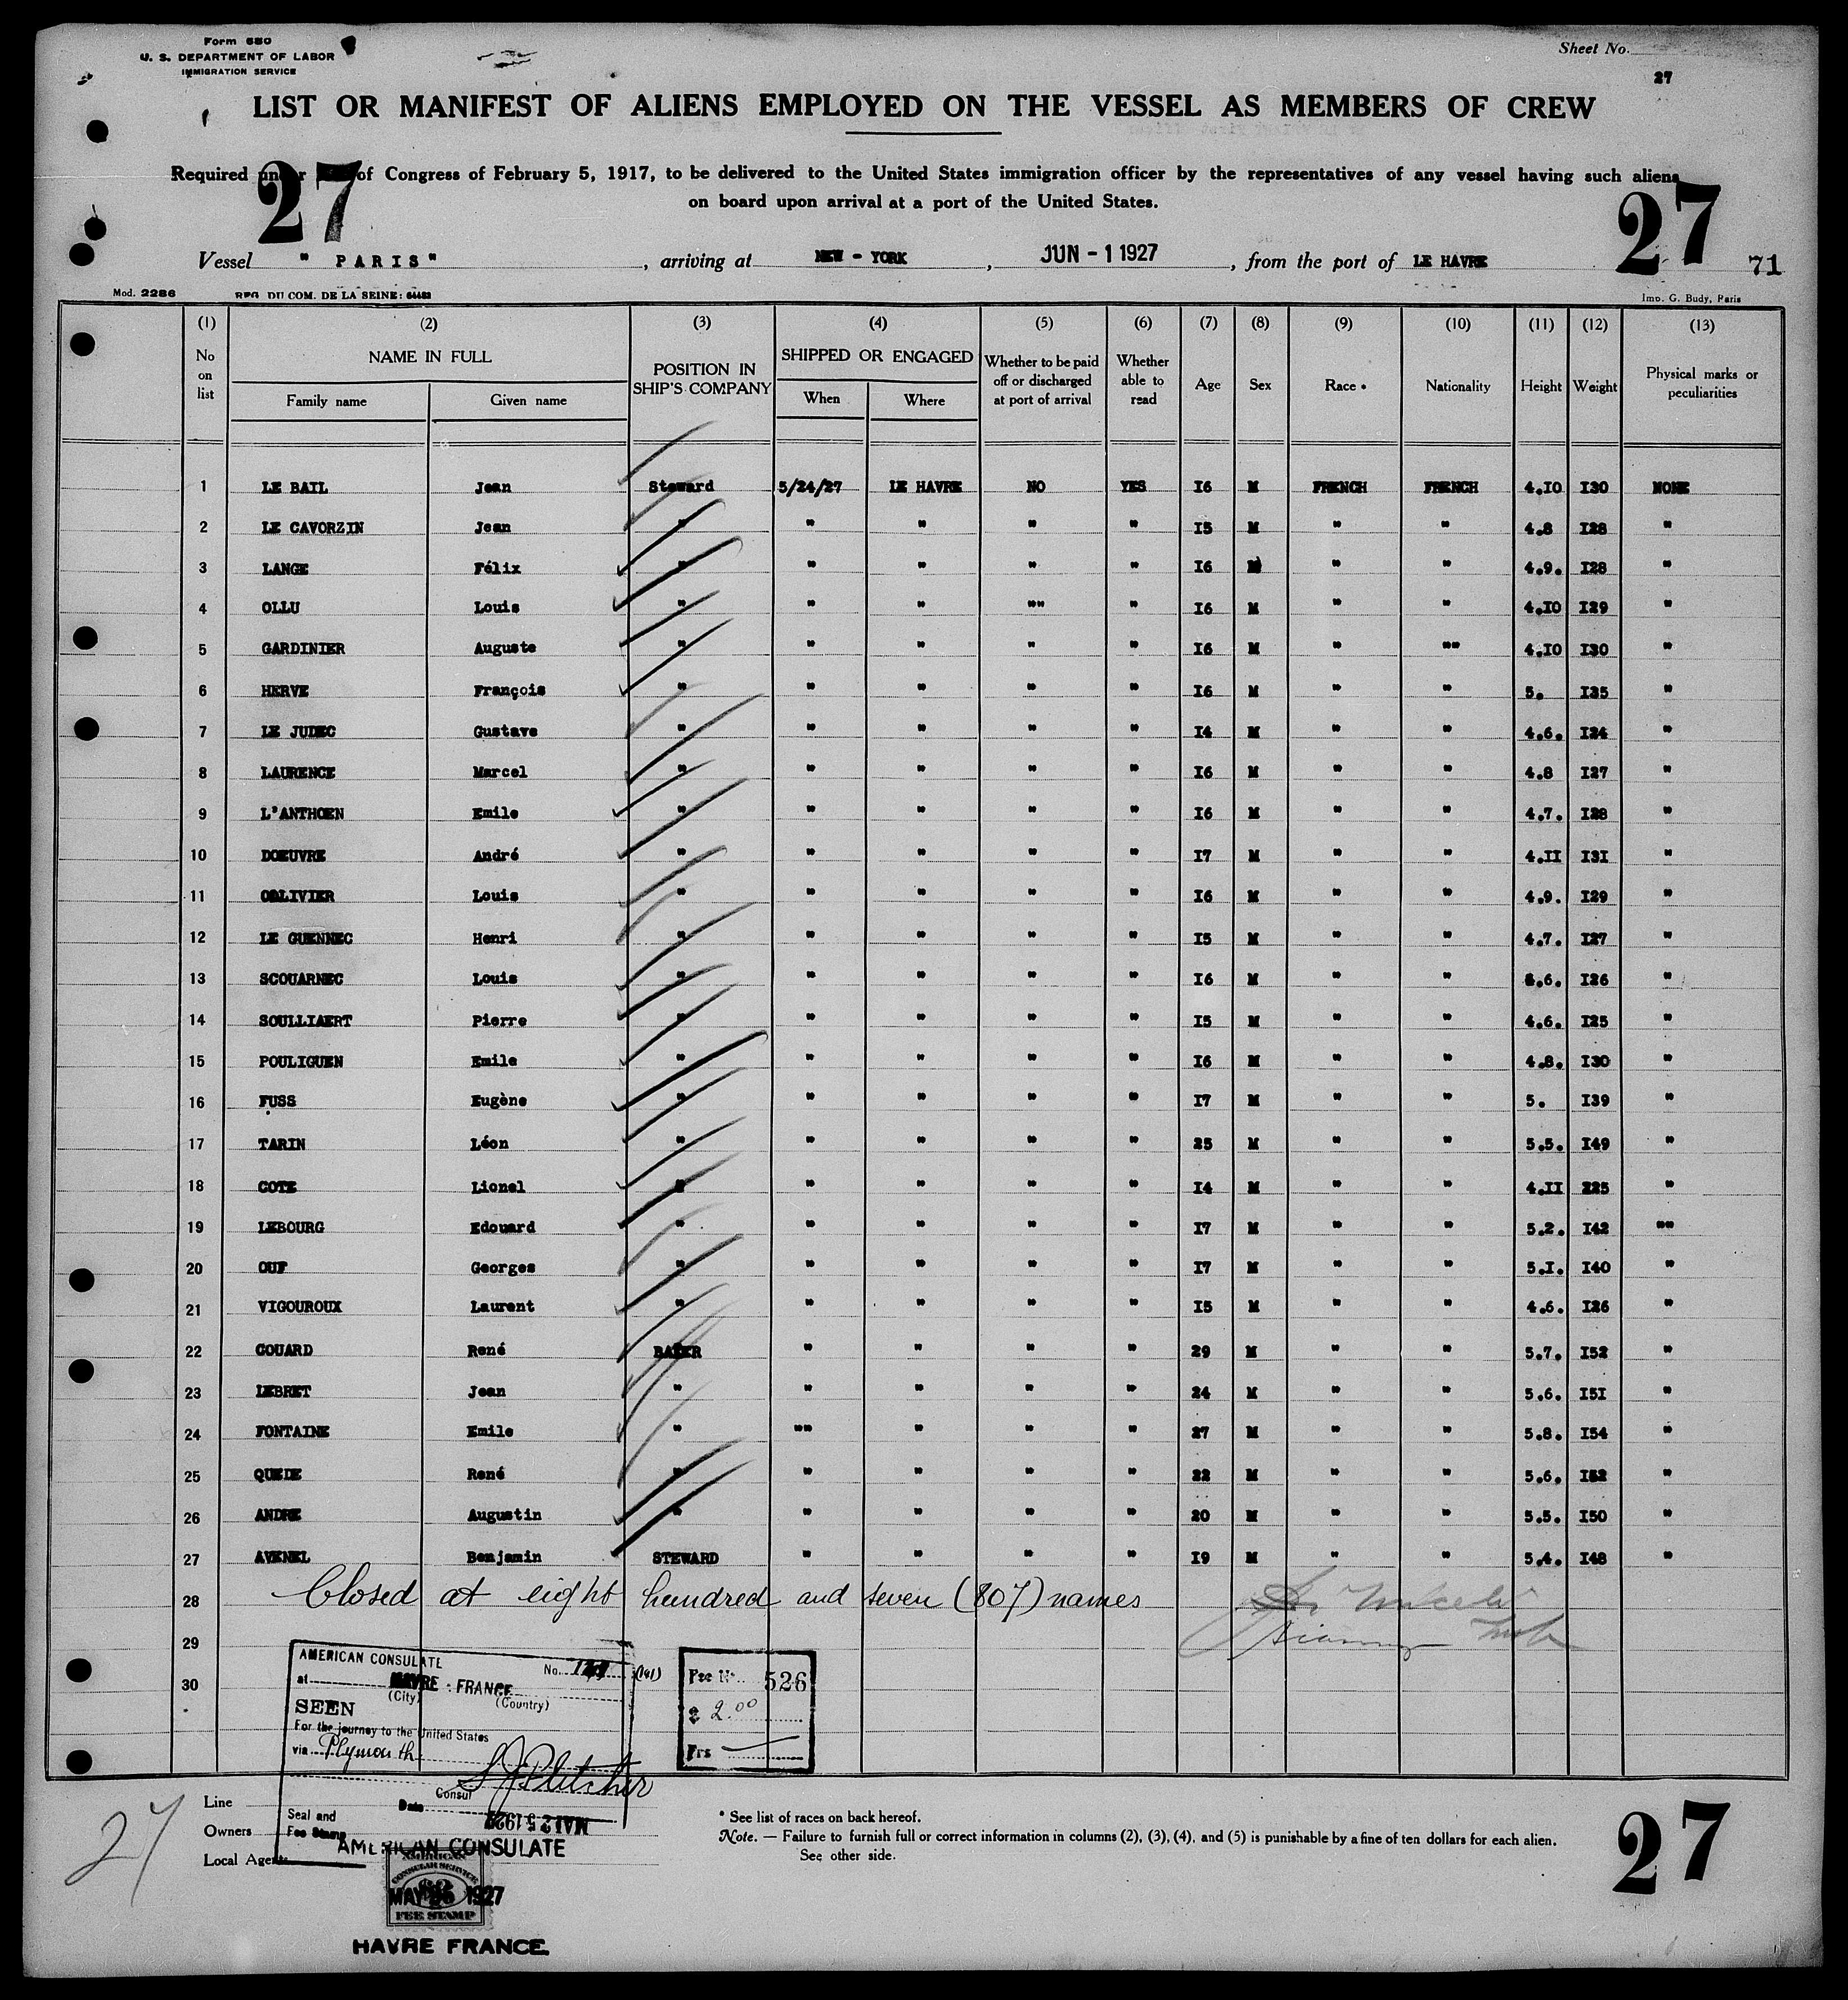 Form 680
U. S. DEPARTMENT OF LABOR
IMMIGRATION SERVICE
Sheet No.
27
LIST OR MANIFEST OF ALIENS EMPLOYED ON THE VESSEL AS MEMBERS OF CREW
Required under of Congress of February 5, 1917, to be delivered to the United States immigration officer by the representatives of any vessel having such aliens
on board upon arrival at a port of the United States.
27 27
Vessel " PARIS" , arriving at NEW - YORK , JUN - 1 1927 , from the port of LE HAVRE 71
Mod. 2286 REG. DU COM. DE LA SEINE: 64483 Imp. G. Budy, Paris
(1) (2) (3) (4) (5) (6) (7) (8) (9) (10) (11) (12) (13)
No on list NAME IN FULL POSITION IN SHIP'S COMPANY SHIPPED OR ENGAGED Whether to be paid off or discharged at port of arrival Whether able to read Age Sex Race * Nationality Height Weight Physical marks or peculiarities
Family name Given name When Where
1 LE BAIL Jean Steward 5/24/27 LE HAVRE NO YES I6 M FRENCH FRENCH 4.IO I30 NONE
2 LE CAVORZIN Jean " " " " " I5 M " " 4.8 I28 "
3 LANGE Félix " " " " " I6 M " " 4.9. I28 "
4 OLLU Louis " " " "" " I6 M " " 4.IO I29 "
5 GARDINIER Auguste " " " " " I6 M " "" 4.IO I30 "
6 HERVE François " " " " " I6 M " " 5. I35 "
7 LE JUDEC Gustave " " " " " I4 M " " 4.6. I24 "
8 LAURENCE Marcel " " " " " I6 M " " 4.8 I27 "
9 L'ANTHOEN Emile " " " " " I6 M " " 4.7. I28 "
10 DOEUVRE André " " " " " I7 M " " 4.II I3I "
11 OLLIVIER Louis " " " " " I6 M " " 4.9. I29 "
12 LE GUENNEC Henri " " " " " I5 M " " 4.7. I27 "
13 SCOUARNEC Louis " " " " " I6 M " " 4.6. I26 "
14 SOULLIAERT Pierre " " " " " I5 M " " 4.6. I25 "
15 POULIGUEN Emile " " " " " I6 M " " 4.8. I30 "
16 FUSS Eugène " " " " " I7 M " " 5. I39 "
17 TARIN Léon " " " " " 25 M " " 5.5. I49 "
18 COTE Lionel " " " " " I4 M " " 4.II 225 "
19 LEBOURG Edouard " " " " " I7 M " " 5.2. I42 ""
20 OUF Georges " " " " " I7 M " " 5.I. I40 "
21 VIGOUROUX Laurent " " " " " I5 M " " 4.6. I26 "
22 COUARD René BAKER " " " " 29 M " " 5.7. I52 "
23 LEBRET Jean " " " " " 24 M " " 5.6. I5I "
24 FONTAINE Emile " "" " " " 27 M " " 5.8. I54 "
25 QUEDE René " " " " " 22 M " " 5.6. I52 "
26 ANDRE Augustin " " " " " 20 M " " 5.5. I50 "
27 AVENEL Benjamin STEWARD " " " " I9 M " " 5.4. I48 "
28 Closed at eight hundred and seven (807) names
29
30
AMERICAN CONSULATE
No. (141)
at HAVRE - FRANCE
(City) (Country)
SEEN
For the journey to the United States
via Plymouth
Consul
Date MAI 25 1927
Seal and
Fee Stamp
Fee No. 526
$ 2.00
Frs
Line
Owners
Local Agents
AMERICAN CONSULATE
AMERICAN
CONSULAR SERVICE
$2
MAY 25 1927
FEE STAMP
HAVRE FRANCE.
* See list of races on back hereof.
Note. — Failure to furnish full or correct information in columns (2), (3), (4), and (5) is punishable by a fine of ten dollars for each alien.
See other side.
27
27